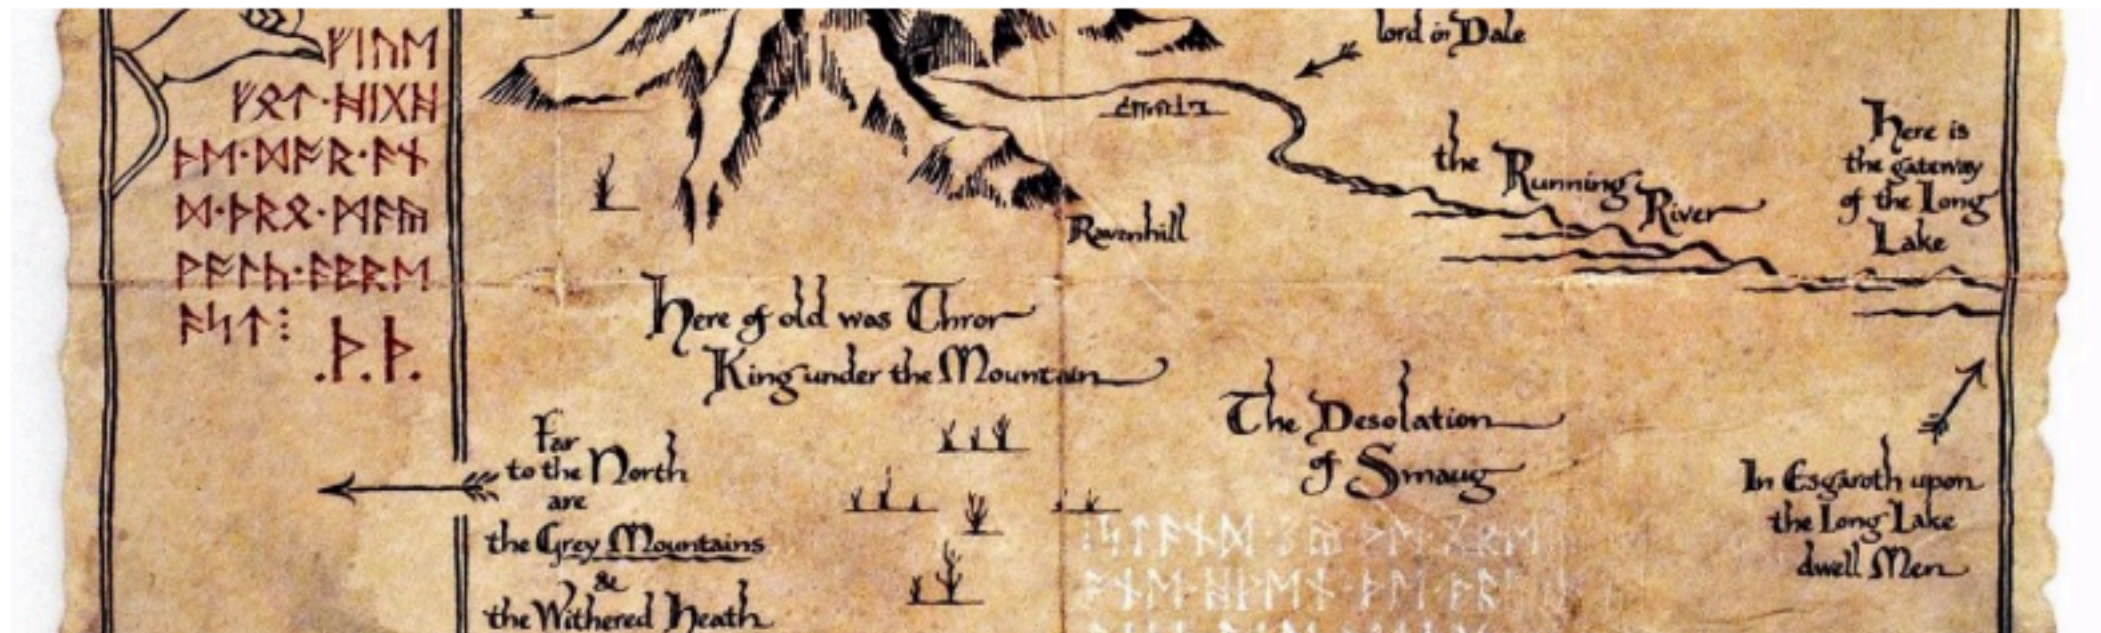 ᚠᛁᚢᛖ
ᚠᛟᛏ᛫ᚻᛁᚷᚻ
ᚦᛖ᛫ᛞᚩᚱ᛫ᚪᚾ
ᛞ᛫ᚦᚱᛟ᛫ᛗᚪᚣ
ᚹᚪᛚᚳ᛫ᚪᛒᚱᛖ
ᚪᛋᛏ⁝
.ᚦ.ᚦ.
lord in Dale
the Running
River
Here is
the gateway
of the Long
Lake
Ravenhill
Here of old was Thror
King under the Mountain
The Desolation
of Smaug
Far
to the North
are
the Grey Mountains
&
the Withered Heath
In Esgaroth upon
the Long Lake
dwell Men